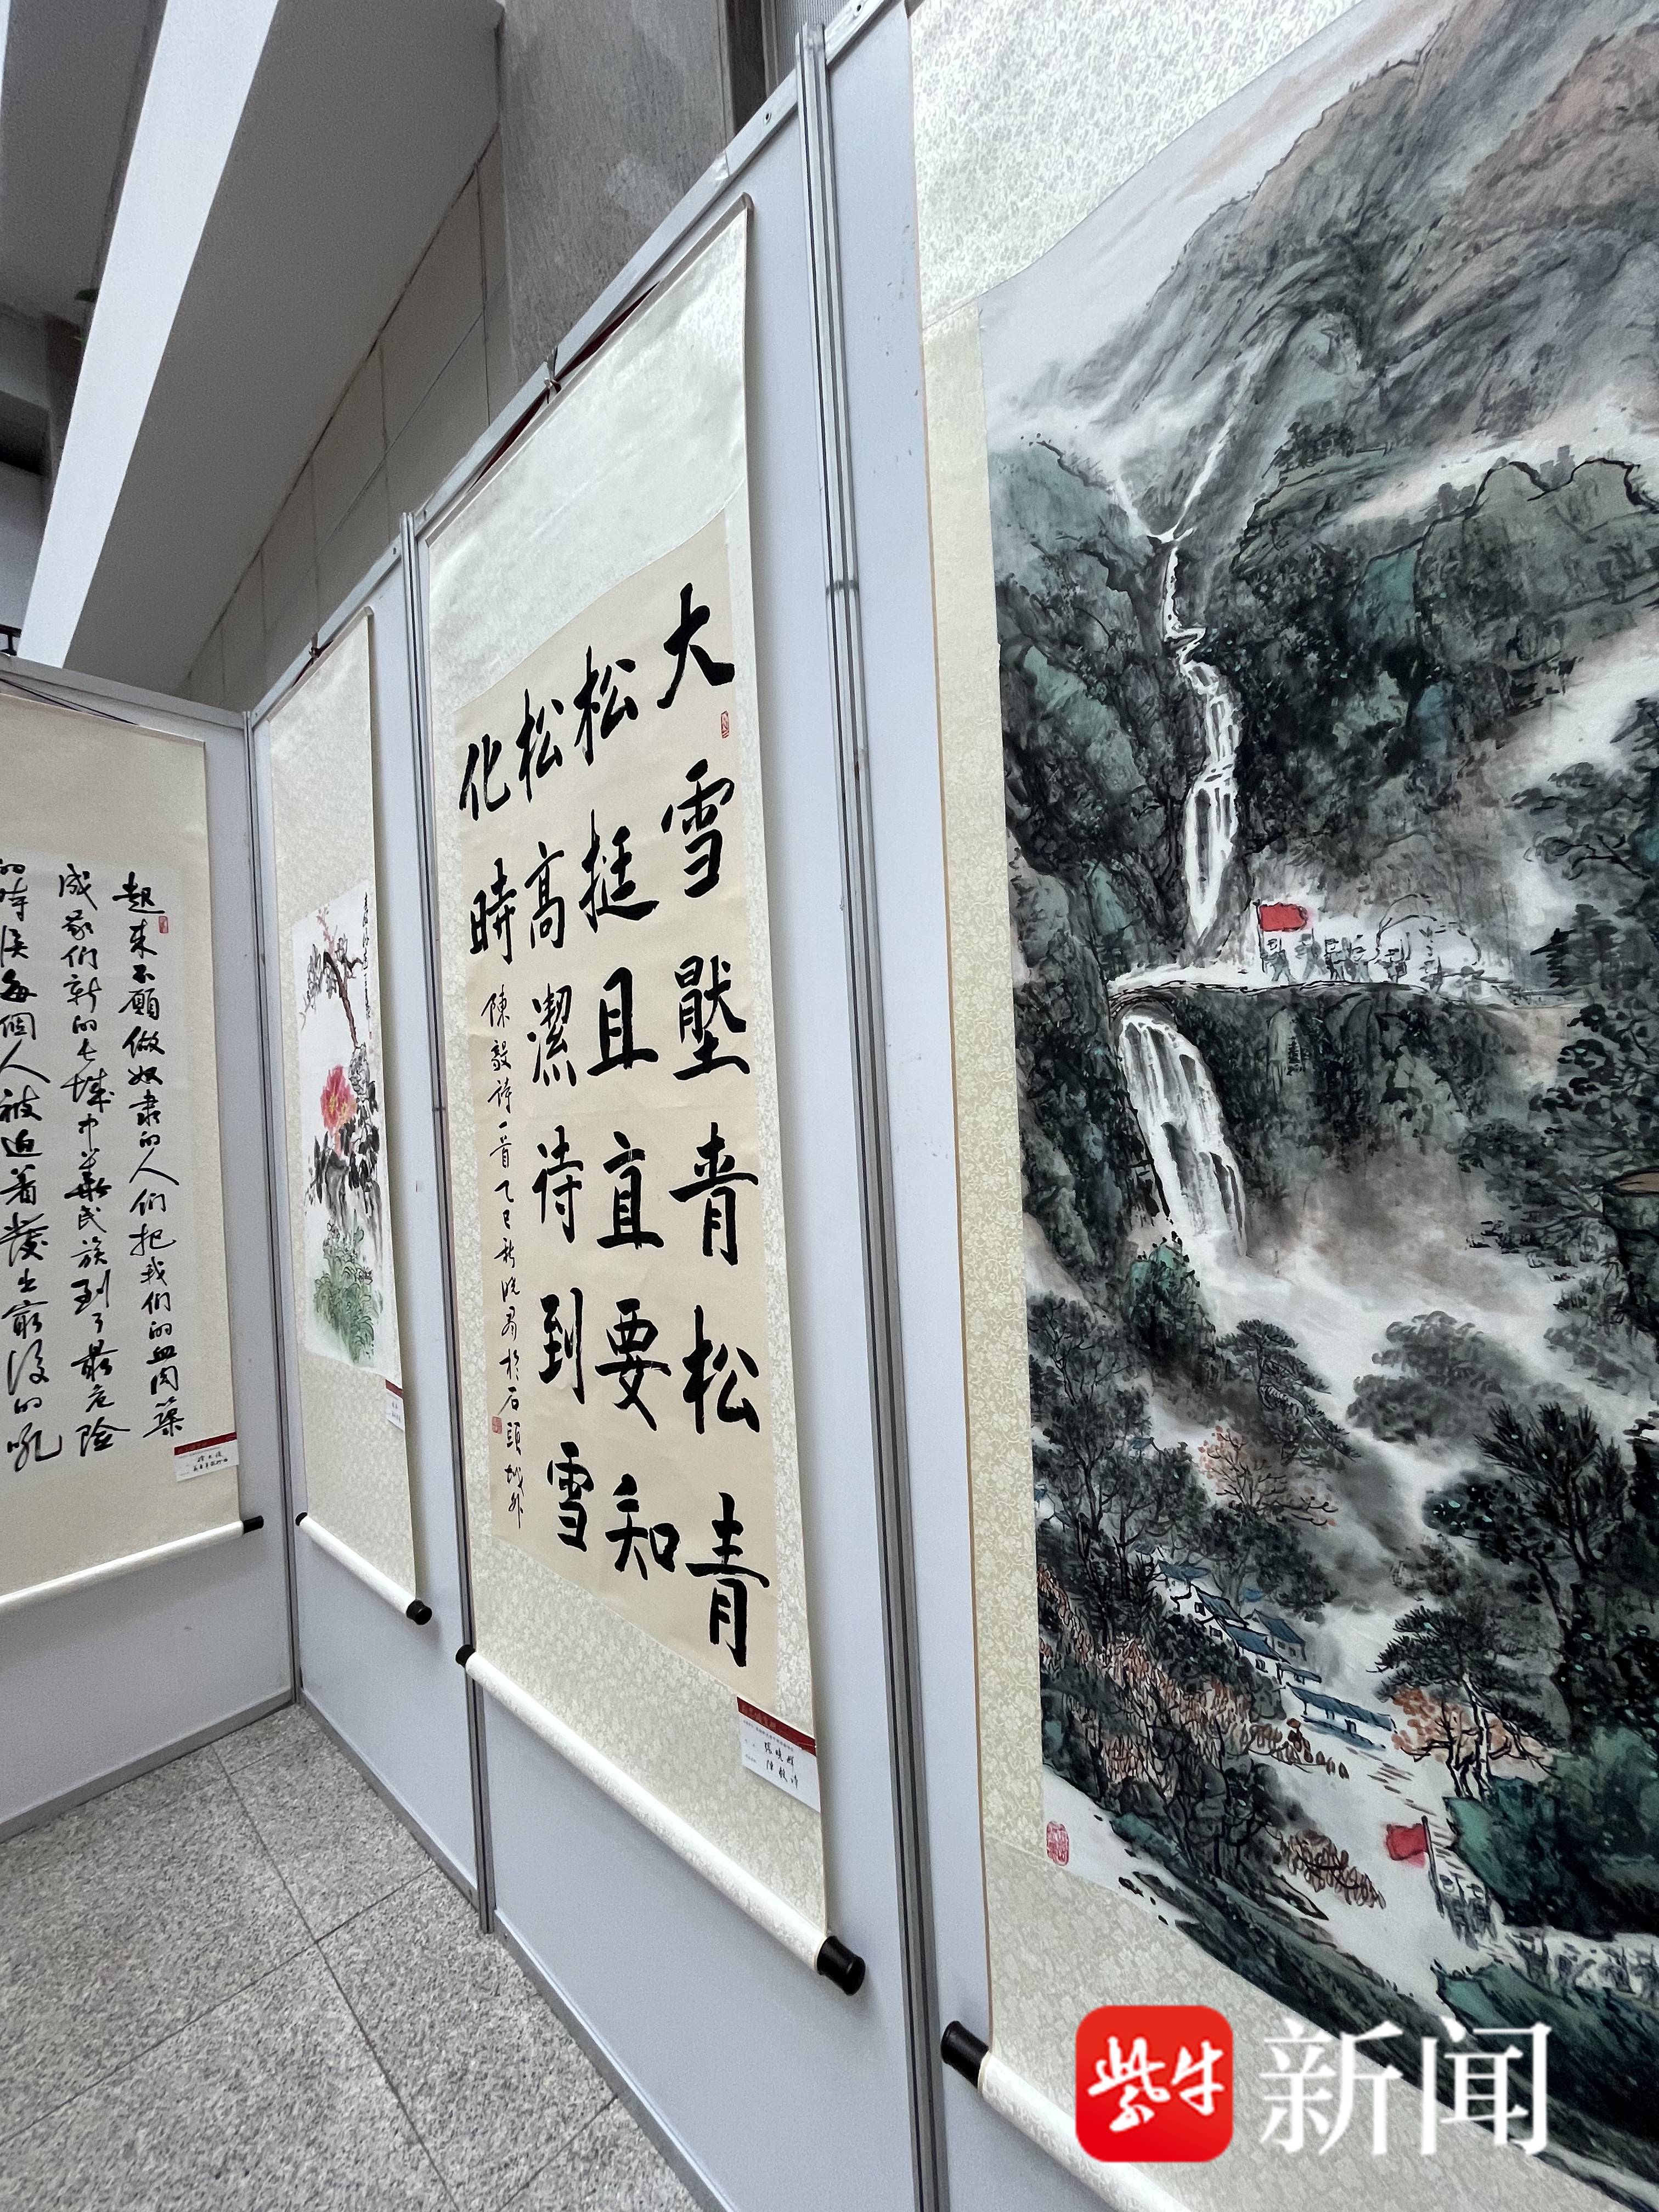 大雪壓青松青
松挺且直要知
松高潔待到雪
化時
陳毅詩一首乙巳秋於石頭城外
陳毅诗
起来不願做奴隶的人们把我们的血肉築
成我们新的长城中華民族到了最危险
的時候每個人被迫着發出最後的吼
紫牛新闻